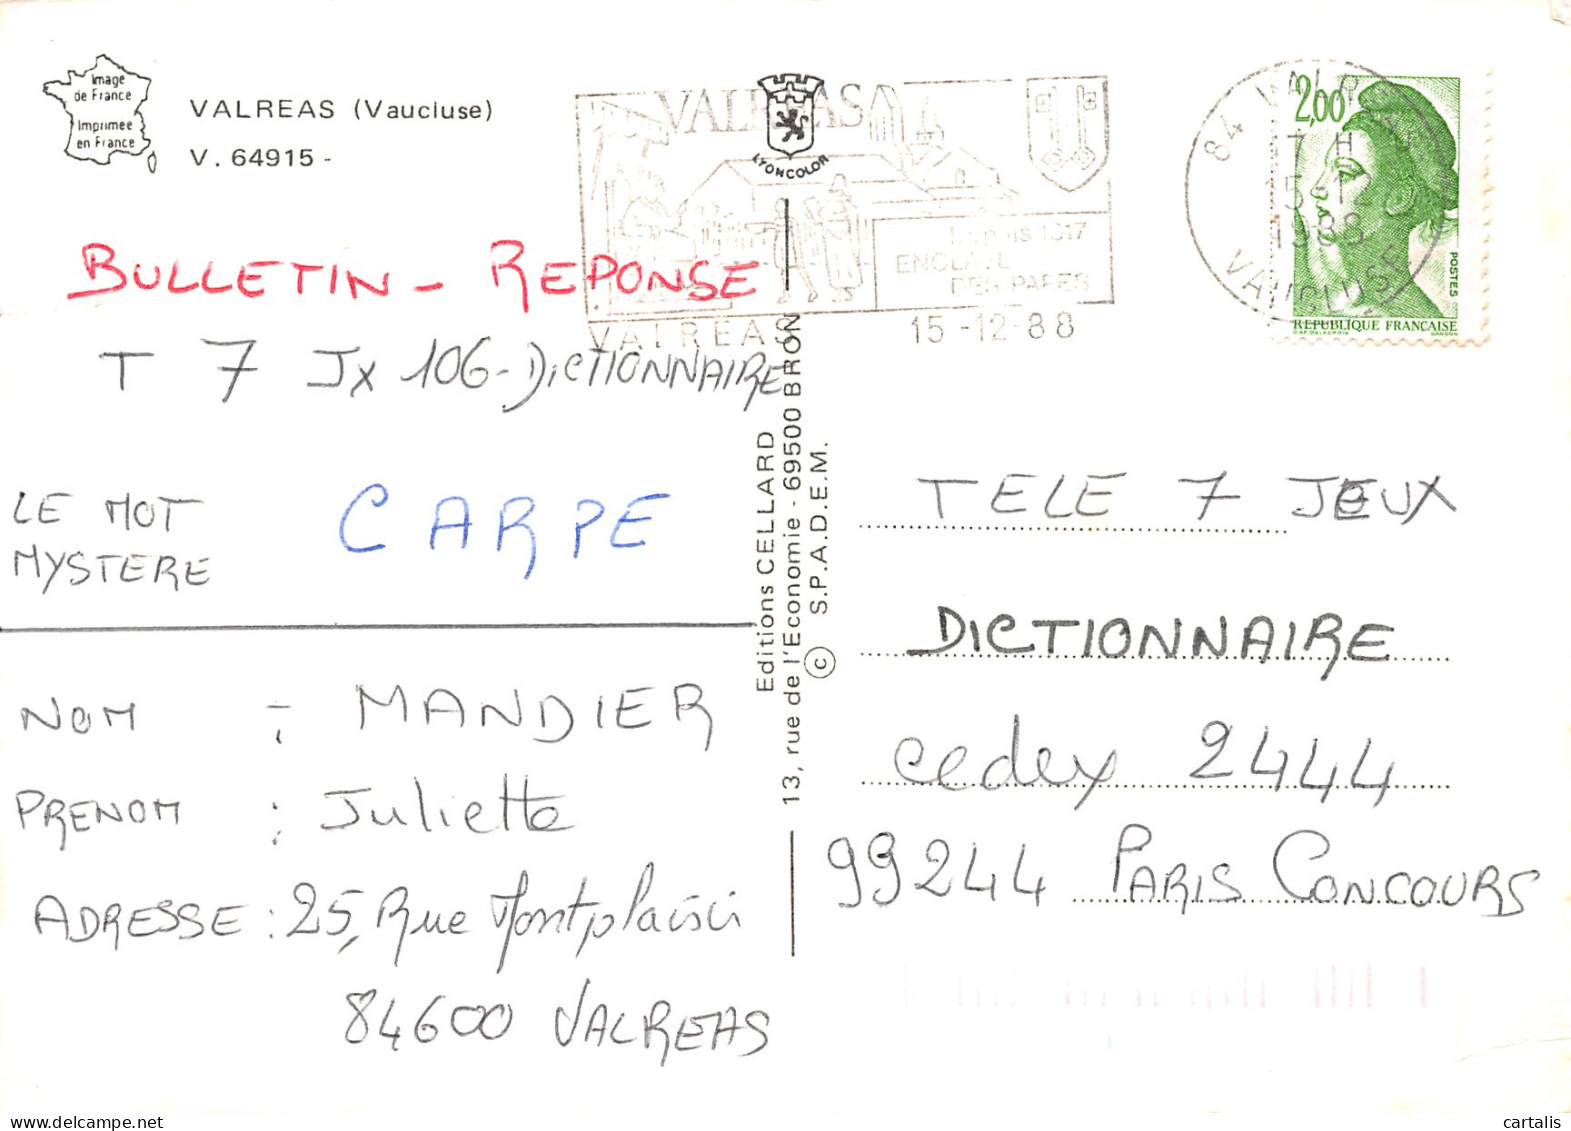 Image
de France
Imprimée
en France
VALREAS (Vaucluse)
V. 64915 -
LYONCOLOR
VALREAS
Depuis 1317
ENCLAVE
DES PAPES
VALREAS
15-12-88
84 VALREAS
17 H
15-12
1988
VAUCLUSE
2,00
POSTES
REPUBLIQUE FRANÇAISE
BULLETIN - REPONSE
T 7 Jx 106 - DICTIONNAIRE
LE MOT
MYSTERE
CARPE
NOM : MANDIER
PRENOM : Juliette
ADRESSE : 25, Rue Montplaisir
84600 VALREAS
Editions CELLARD
13, rue de l'Economie - 69500 BRON
© S.P.A.D.E.M.
TELE 7 JEUX
DICTIONNAIRE
cedex 2444
99244 PARIS CONCOURS
cartalis